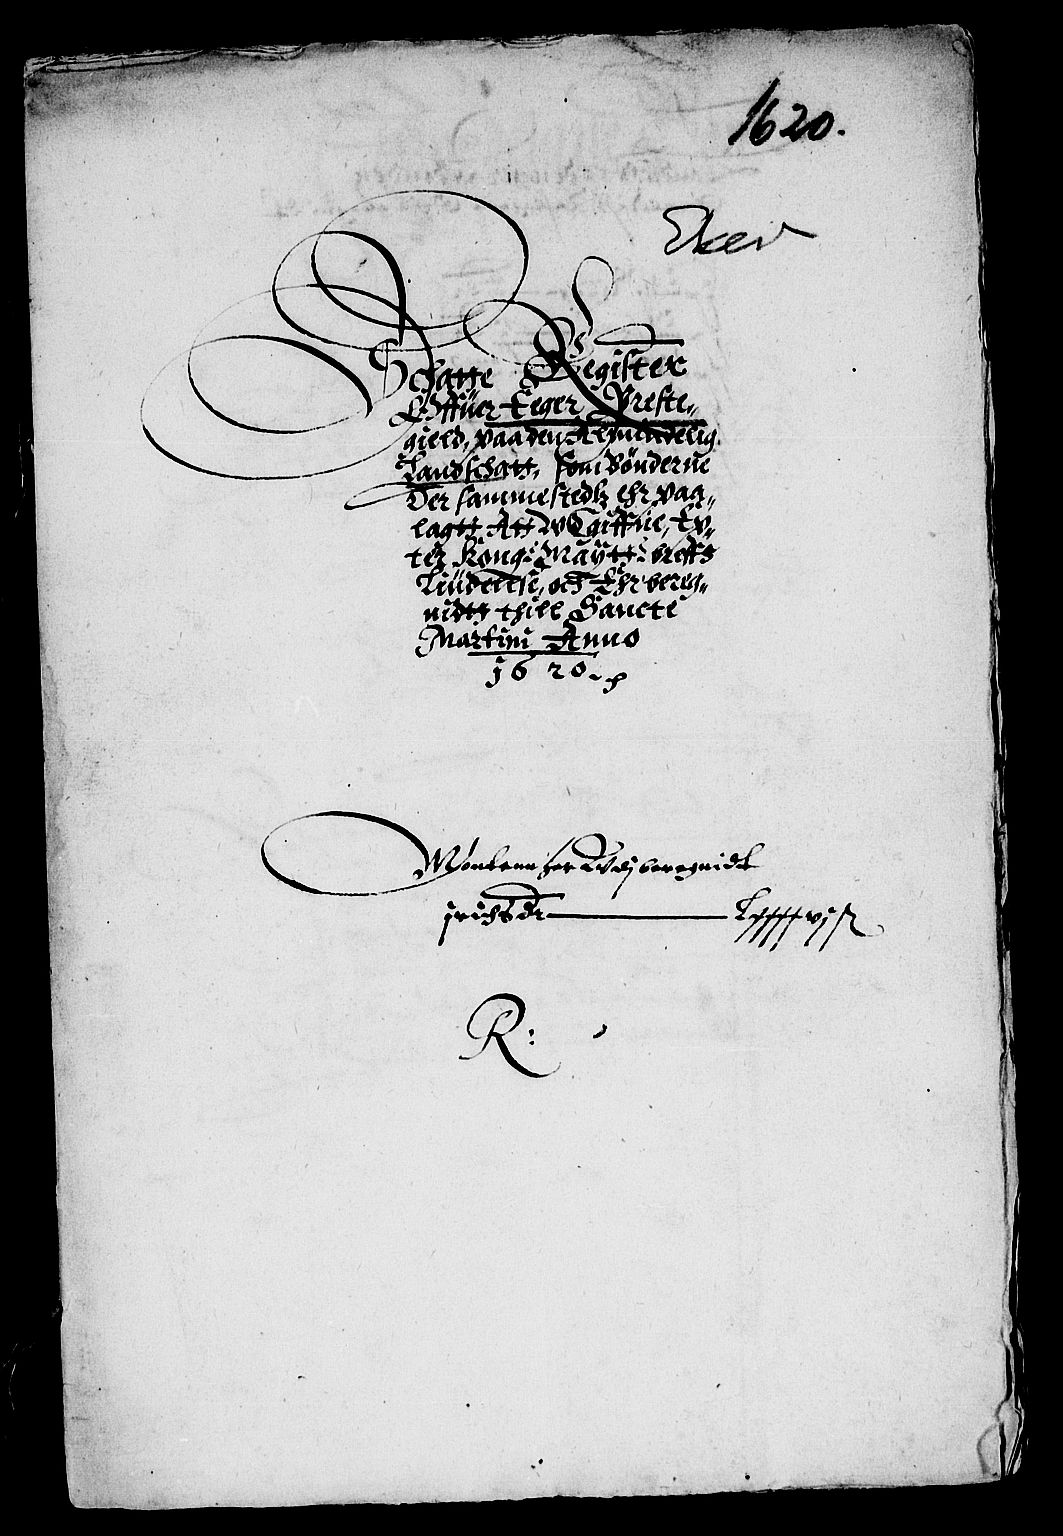 1620.
Eker
Schatte Register
Offuer Eeger Preste-
gield, paa den Almindelig
Landschatt, som Bønderne
Der sammestedtz ehr paa-
lagtt Att Udgiffue, Ep-
ter Kong: Maÿttz: breffs
Liüdellse, och Ehr bereg-
nidtt thill Sancti
Martini Anno
1620
Mønten her Udj beregnidt
j richsdr
R: